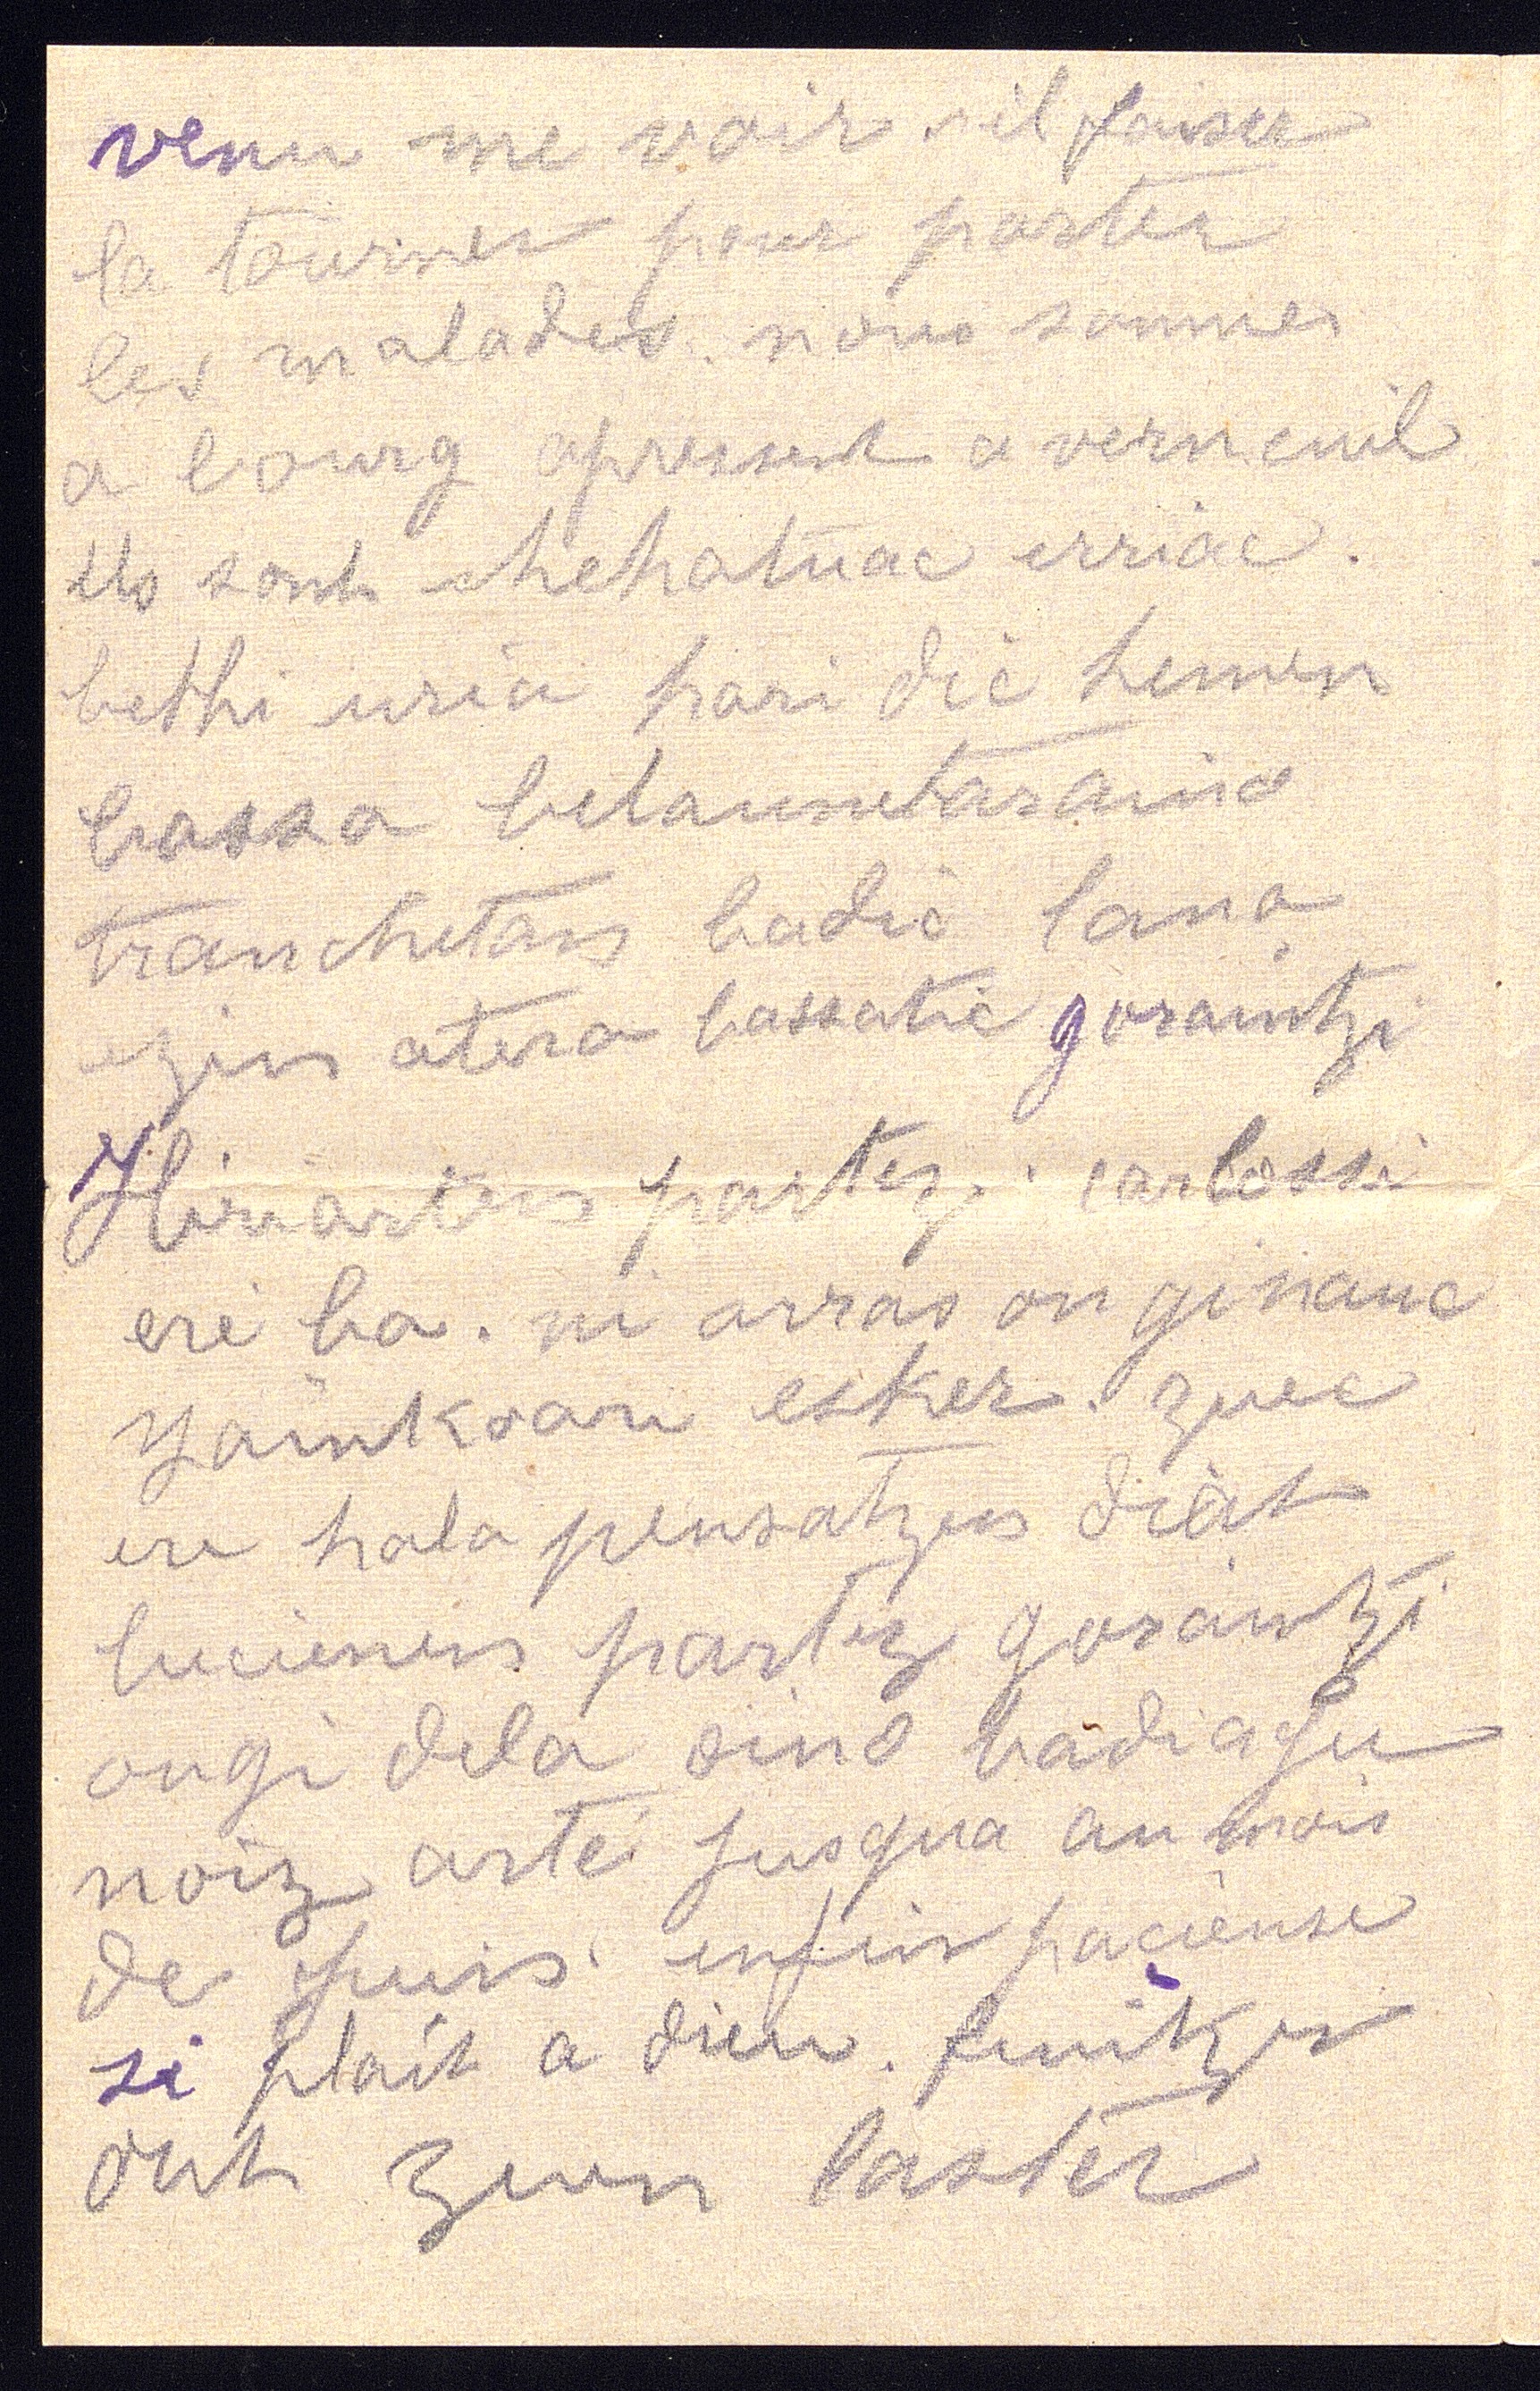 venu me voir. il faiser
la tourner pour porter
les malades. nous sommes
a bourg apresent a verneuil
ils sont chehatuac erriac.
bethi uria hari dié hemen
bassa belaunetaraino
tranchetan badié lana
ezin atera bassatié goraintzi
Hiriarten partez. carlossi
eré ba. ni arras on ginauc
yainkoari esker. zuec
ere hala pensatzen diat
lucienen partez goraintzi
ongi dela oino badiagu
noiz arté jusqua au mois
de juis. enfin paciense
si plait a dieu. finitzen
dut zuen laster